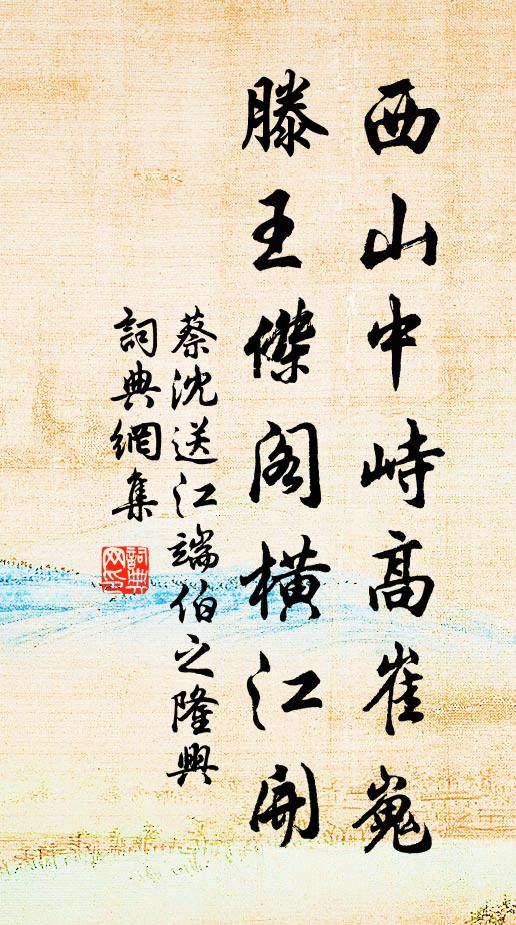 西山中峙高崔嵬
滕王傑阁橫江開
蔡沈送江端伯之隆興
詞典網集